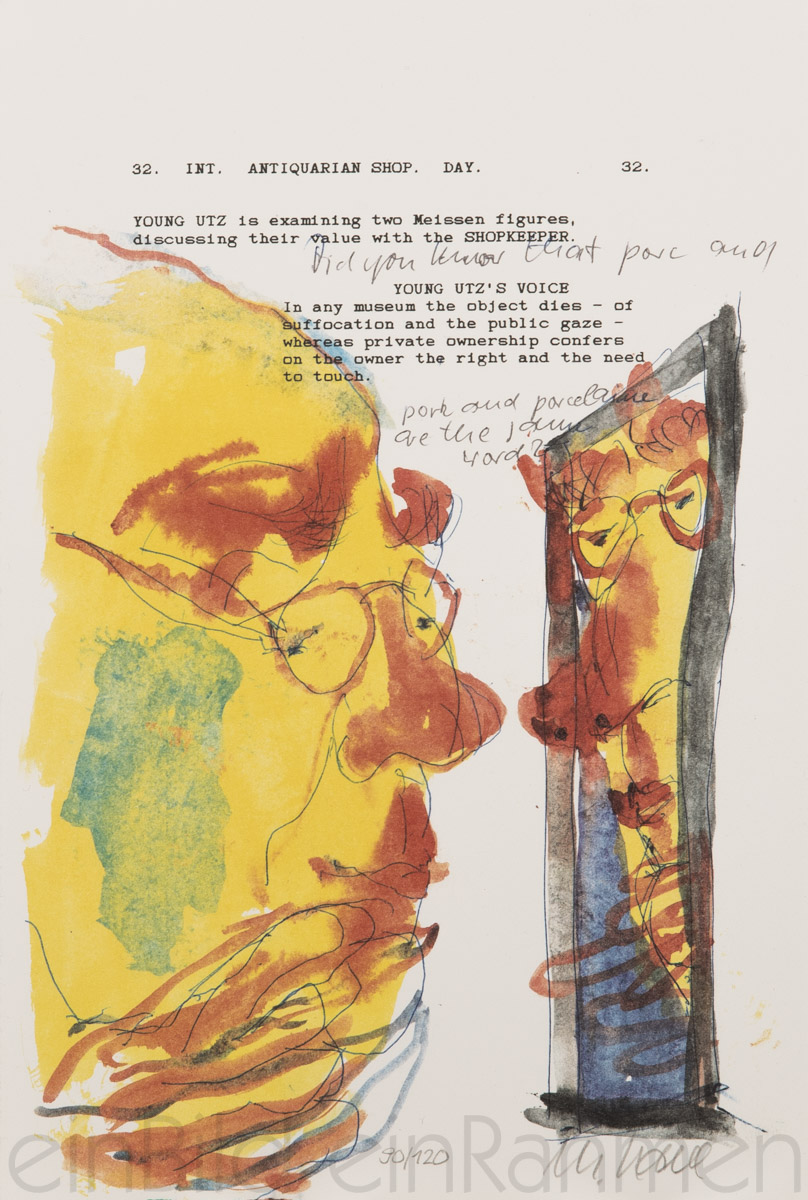 32. INT. ANTIQUARIAN SHOP. DAY. 32.
YOUNG UTZ is examining two Meissen figures,
discussing their value with the SHOPKEEPER.
Did you know that porc and
YOUNG UTZ'S VOICE
In any museum the object dies - of
suffocation and the public gaze -
whereas private ownership confers
on the owner the right and the need
to touch.
pork and porcelaine
are the same
word?
90/120
einBild einRahmen